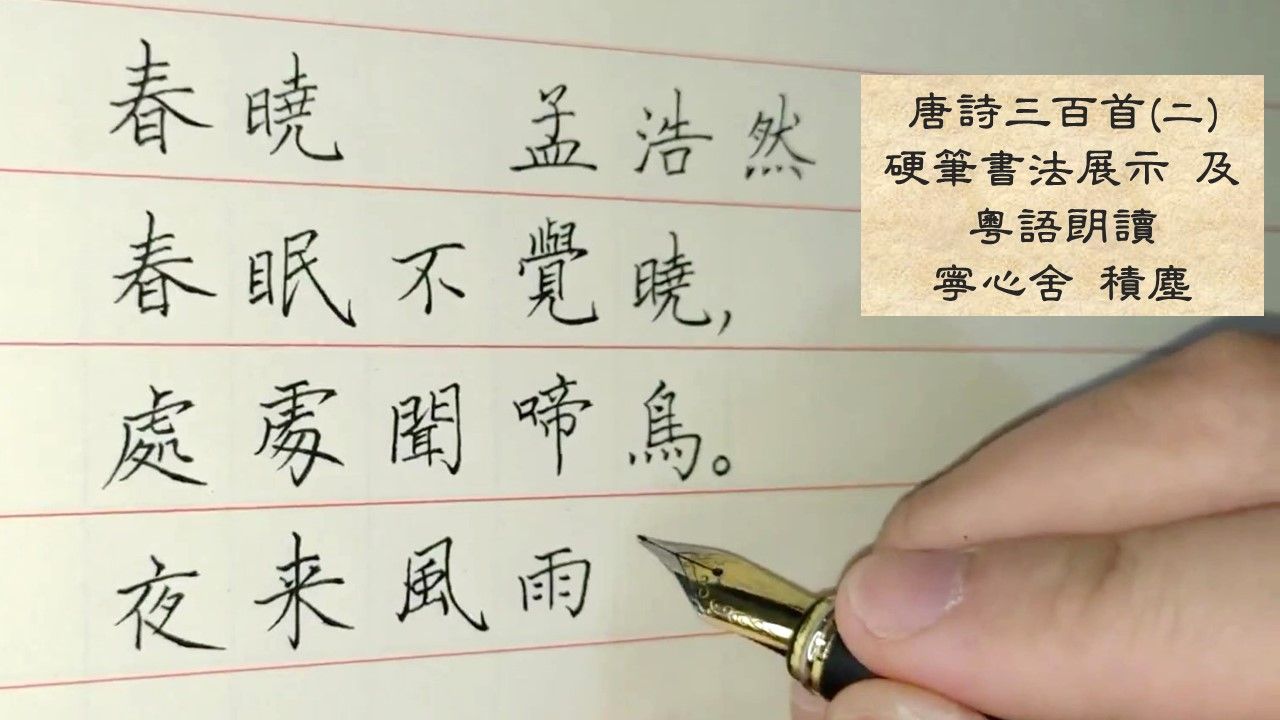 春曉 孟浩然
春眠不覺曉,
處處聞啼鳥。
夜来風雨
唐詩三百首(二)
硬筆書法展示 及
粵語朗讀
寧心舍 積塵